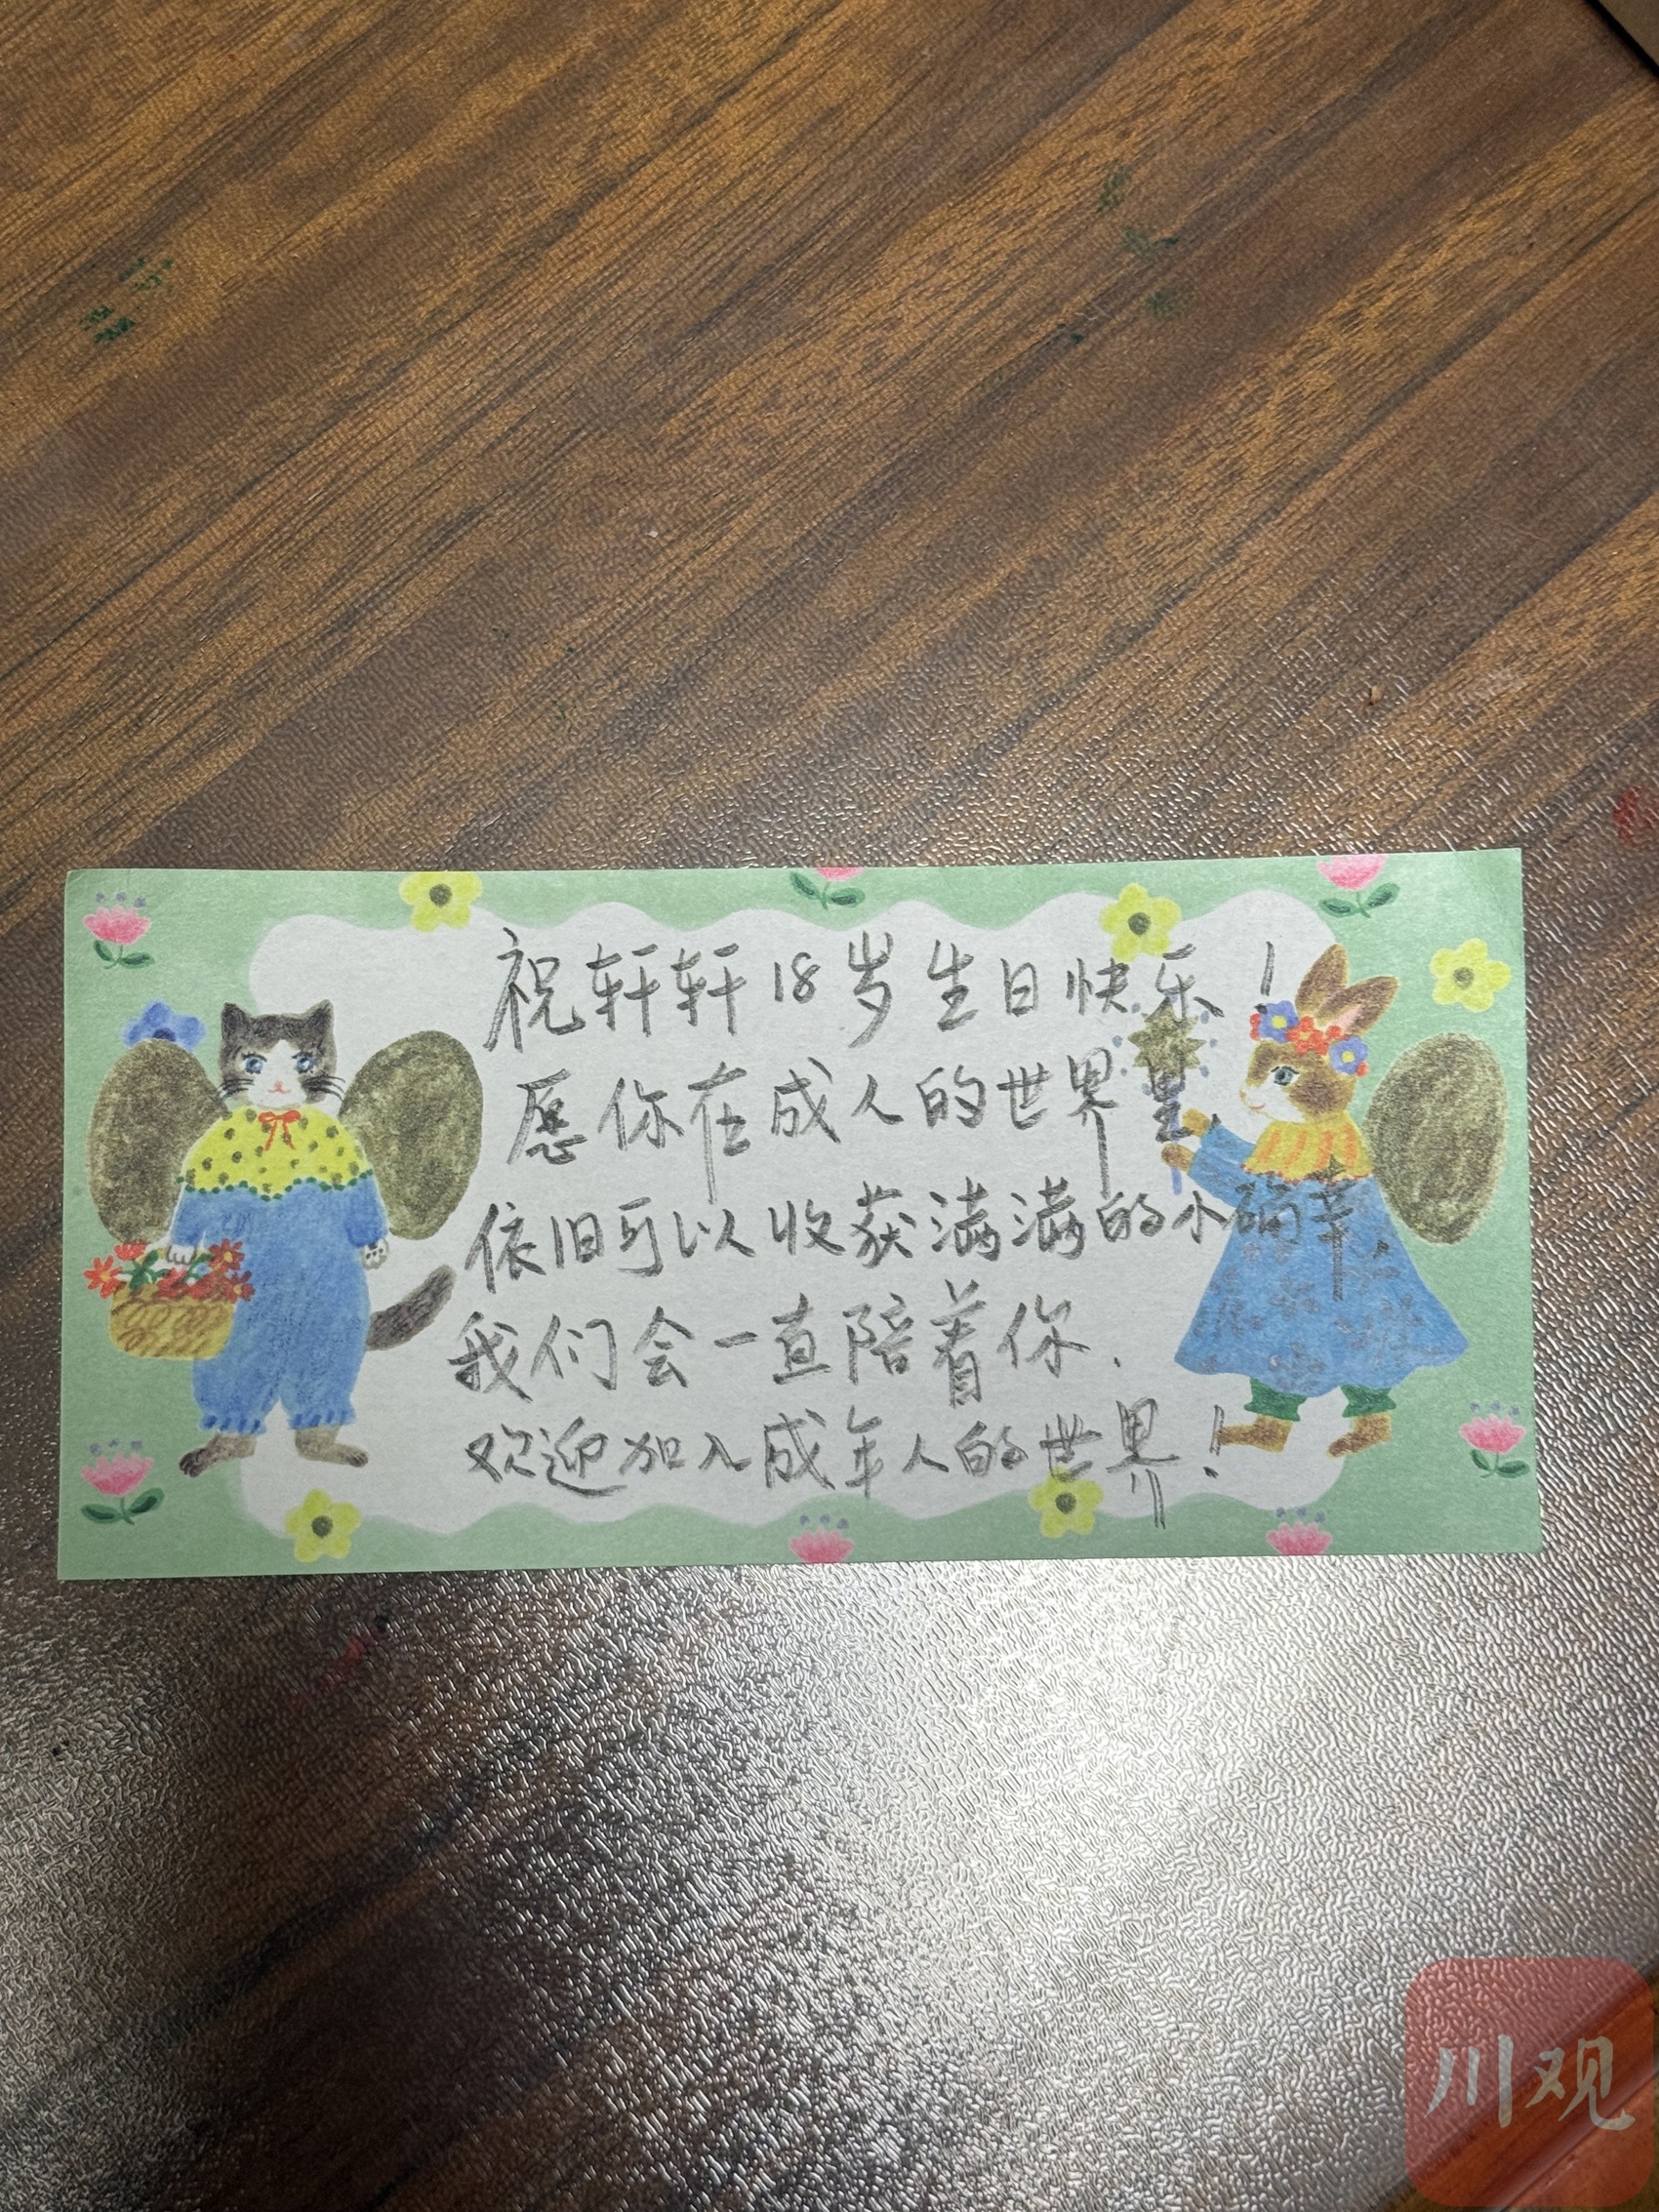 祝轩轩18岁生日快乐！
愿你在成人的世界里
依旧可以收获满满的小确幸.
我们会一直陪着你.
欢迎加入成年人的世界！
川观